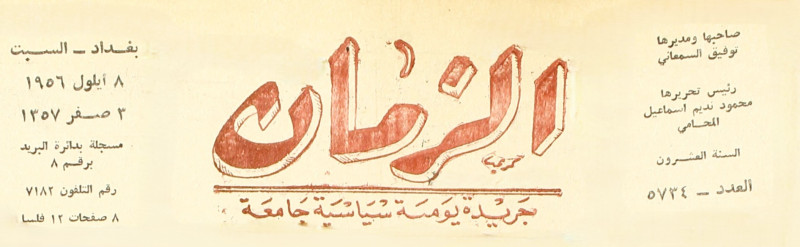 صاحبها ومديرها
توفيق السمعاني
رئيس تحريرها
محمود نديم اسماعيل
المحامي
السنة العشرون
العدد – ٥٧٣٤
الزمان
جريدة يومية سياسية جامعة
بغداد – السبت
٨ أيلول ١٩٥٦
٣ صفر ١٣٥٧
مسجلة بدائرة البريد
برقم ٨
رقم التلفون ٧١٨٢
٨ صفحات ١٢ فلسا